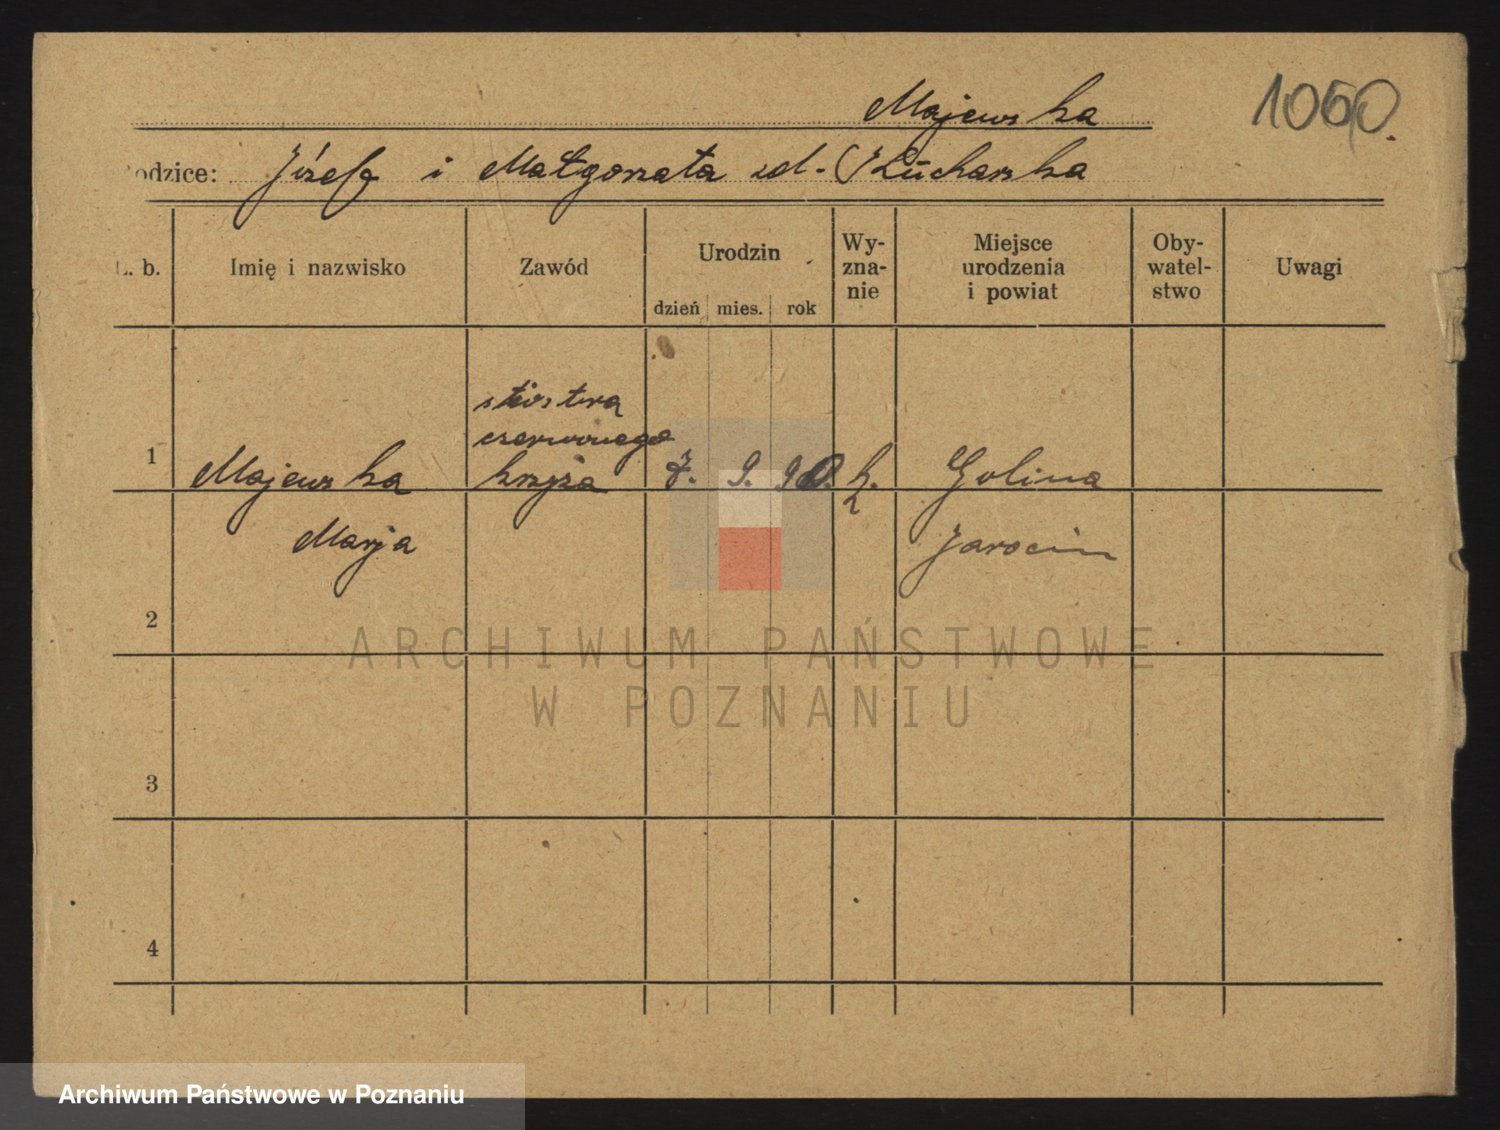 Majewska
1060.
odzice: Józef i Małgorzata zd. Kucharska
L. b.
Imię i nazwisko
Zawód
Urodzin
dzień mies. rok
Wy-
zna-
nie
Miejsce
urodzenia
i powiat
Oby-
watel-
stwo
Uwagi
1
Majewska
Marja
siostra
czerwonego
krzyża
7. 9. 90. k.
Golina
Jarocin
2
3
4
ARCHIWUM PAŃSTWOWE
W POZNANIU
Archiwum Państwowe w Poznaniu